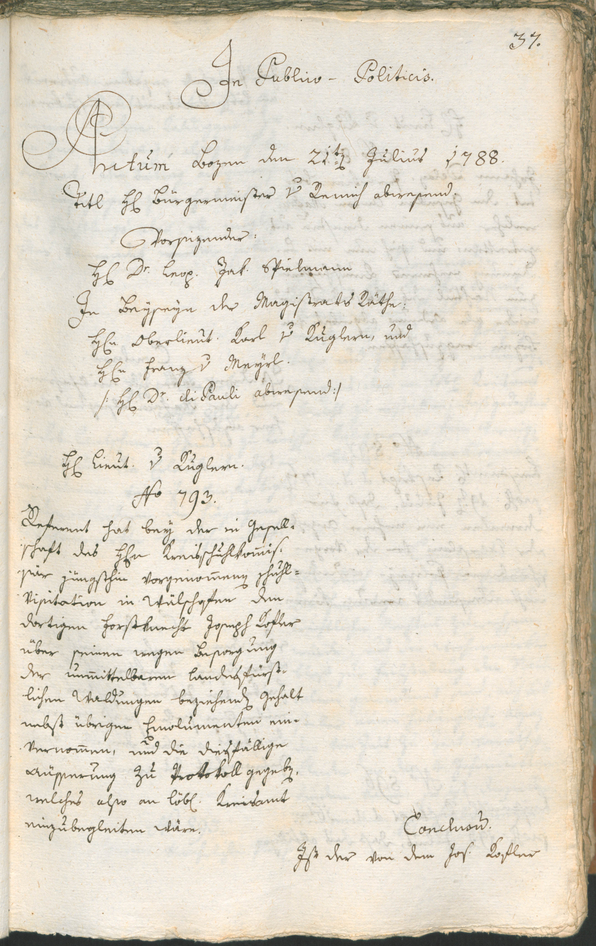 37.
In Publico-Politicis.
Actum Bozen den 21ten Julius 1788.
Titl H. Bürgermeister v Remich abwesend
Vorsizender:
H. Dr. Leop. Jak. Spielmann
In Beyseyn der Magistrats Räthe:
H. Oberlieut. Karl v Kuglern, und
H. Franz v Meyrl.
/: H. Dr. di Pauli abwesend :/
H. Lieut. v Kuglern.
No 793.
Referent hat bey der in Gesell-
schaft des H. Kreisschuhlkommis-
sär jüngsthin vorgenommenen Schuhl-
visitation in Wälschnofen den
dortigen Forstknecht Joseph Kofler
über seinen wegen Besorgung
der unmittelbaren landesfürst-
lichen Waldungen beziehend Gehalt
nebst übrigen Emolumenten ein-
vernommen, und die diesfällige
Äusserung zu Protokoll gegeben,
welches also an löbl. Kreisamt
einzubegleiten wäre.
Conclusum.
Ist der von dem Jos. Kofler